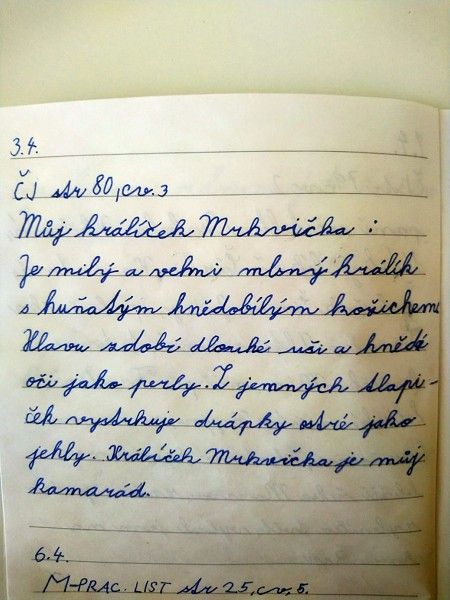 3.4.
ČJ str 80, cv. 3
Můj králíček Mrkvička :
Je milý a velmi mlsný králík
s huňatým hnědobílým kožichem.
Hlavu zdobí dlouhé uši a hnědé
oči jako perly. Z jemných tlapi-
ček vystrkuje drápky ostré jako
jehly. Králíček Mrkvička je můj
kamarád.
6.4.
M-PRAC. LIST str 25, cv. 5.